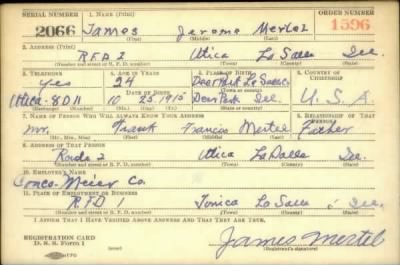 SERIAL NUMBER 1. NAME (Print) ORDER NUMBER
2066 James Jerome Mertel 1596
(First) (Middle) (Last)
2. ADDRESS (Print)
R.F.D 2 Utica La Salle Ill.
(Number and street or R. F. D. number) (Town) (County) (State)
3. TELEPHONE 4. AGE IN YEARS 5. PLACE OF BIRTH 6. COUNTRY OF CITIZENSHIP
Yes 24 Deer Park La Salle
(Town or county)
Utica - 8011 DATE OF BIRTH
10 25 1915 Deer Park Ill. U. S. A
(Mo.) (Day) (Yr.) (State or country)
7. NAME OF PERSON WHO WILL ALWAYS KNOW YOUR ADDRESS 8. RELATIONSHIP OF THAT PERSON
Mr. Frank Francis Mertel Father
(Mr., Mrs., Miss) (First) (Middle) (Last)
9. ADDRESS OF THAT PERSON
Route 2 Utica La Salle Ill.
(Number and street or R. F. D. number) (Town) (County) (State)
10. EMPLOYER'S NAME
Meier Co.
11. PLACE OF EMPLOYMENT OR BUSINESS
RFD 1 Tonica La Salle Ill.
(Number and street or R. F. D. number) (Town) (County) (State)
I AFFIRM THAT I HAVE VERIFIED ABOVE ANSWERS AND THAT THEY ARE TRUE.
REGISTRATION CARD
D. S. S. Form 1
James Mertel
(Registrant's signature)